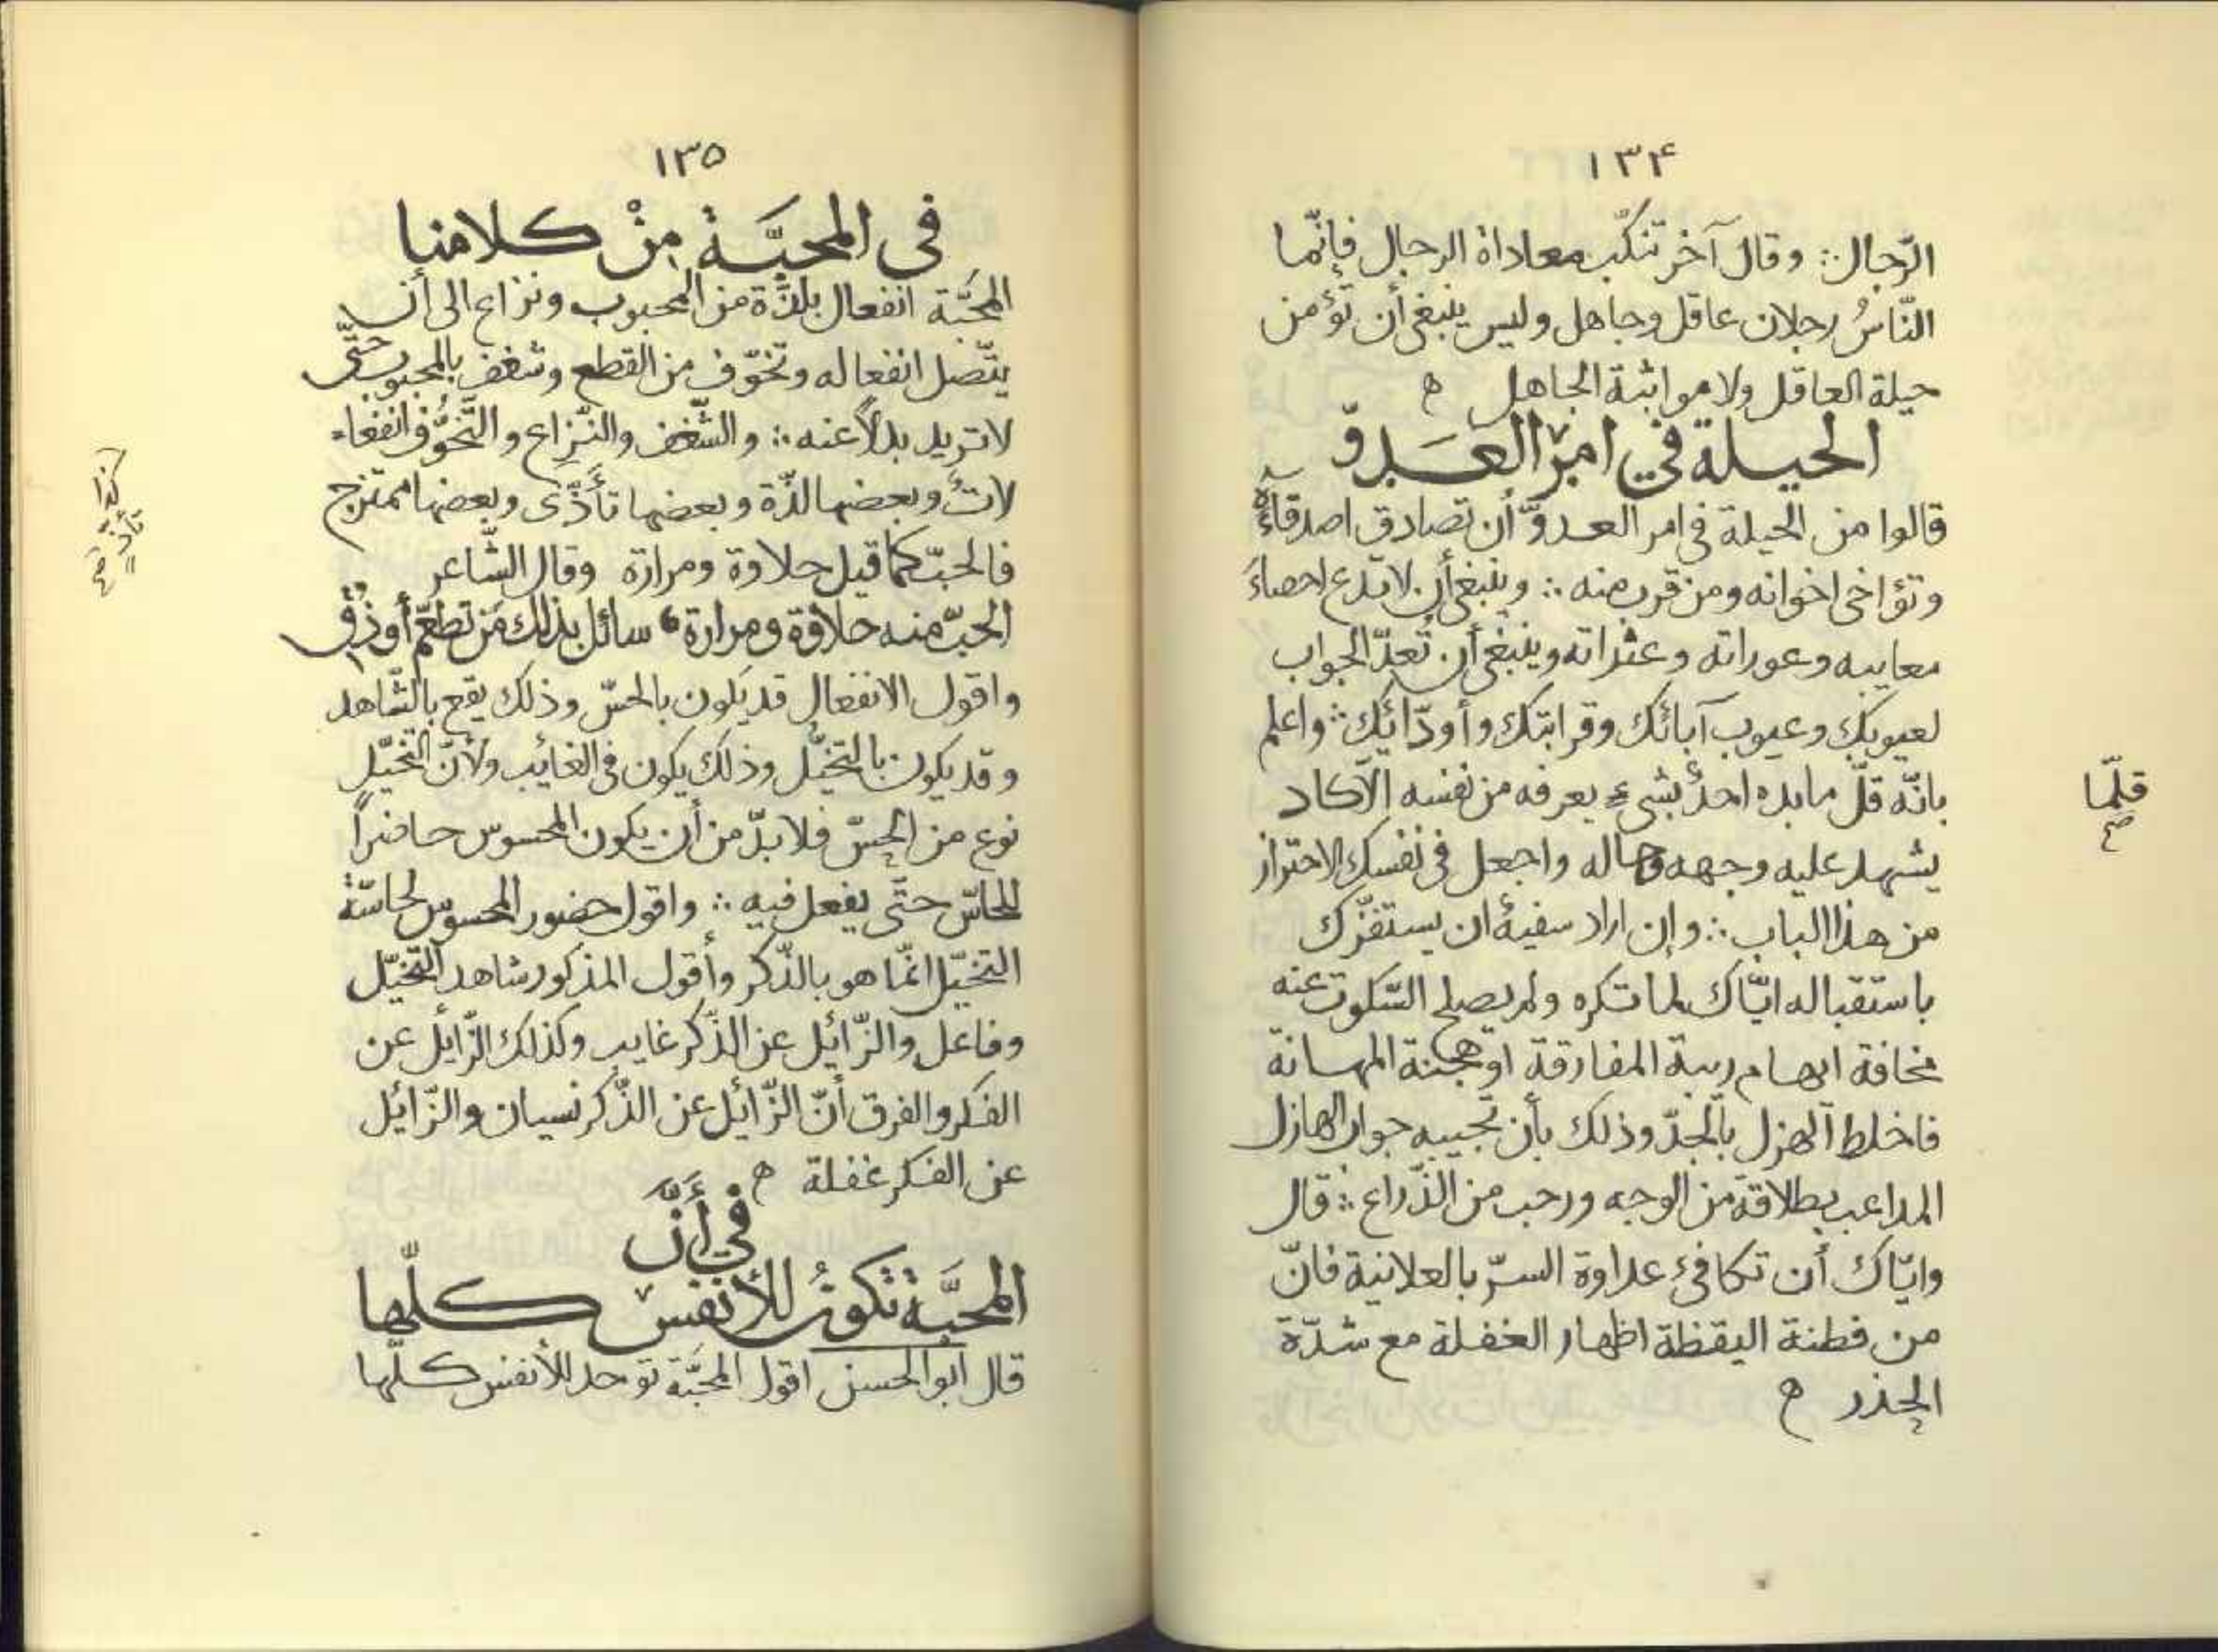 ١٣۴
الرّجال ∴ وقال آخر تنكّب معاداة الرجال فإنّما
النّاسُ رجلان عاقل وجاهل وليس ينبغي أن تؤمن
حيلة العاقل ولا مواثبة الجاهل ه
الحيلة في امر العَدوّ
قالوا من الحيلة في امر العدوّ أن تصادق اصدقاءَه
وتؤاخى اخوانه ومن قرب منه ∴ وينبغي أن لا تدع احصاءَ
معايبه وعوراته وعثراته وينبغي أن تُعدّ الجواب
لعيوبك وعيوب آبائك وقرابتك وأودّائك ∴ واعلم
بانّه قلّ ما بده احدٌ بشىءٍ يعرفه من نفسه الّا كاد
قلّما
يشهد عليه وجهه وحاله واجعل في نفسك الاحتراز
من هذا الباب ∴ وإن اراد سفيهٌ ان يستفزّك
باستقباله ايّاك لما تكره ولم يصلح السّكوت عنه
مخافة ايهام ريبة المفارقة او هجنة المهانة
فاخلط الهزل بالجدّ وذلك بأن تجيبه جواب الهازل
المداعب بطلاقة من الوجه ورحب من الذّراع ∴ قال
وايّاك أن تكافئ عداوة السرّ بالعلانية فانّ
من فطنة اليقظة اظهار الغفلة مع شدّة
الحذر ه
١٣٥
فى المحبَّة مِنْ كلامنا
المحبَّة انفعال بلذَّة من المحبوب ونزاع الى أن
يتّصل انفعاله وتخوّف من القطع وشغف بالمحبوب حتَّى
لا تريد بدلاً عنه ∴ والشّغف والنّزاع والتَّخوُّف انفعا
لاتٌ وبعضها لذّة وبعضها تأذّى وبعضها ممتزج
كذا
تأذٍّ
فالحبّ كما قيل حلاوة ومرارة وقال الشّاعر
الحبّ منه حلاوة ومرارة ، سائل بذلك مَن تطعّم أو ذُقِ
واقول الانفعال قد يكون بالحسّ وذلك يقع بالشّاهد
وقد يكون بالتخيّل وذلك يكون في الغائب ولأنّ التخيّل
نوع من الحسّ فلا بدّ من أن يكون المحسوس حاضراً
للحاسّ حتَّى يفعل فيه ∴ واقول حضور المحسوس لحاسّة
التخيّل انّما هو بالذّكر وأقول المذكور شاهد التّخيّل
وفاعل والزّائل عن الذّكر غايب وكذلك الزّايل عن
الفكر والفرق أنّ الزّائل عن الذّكر نسيان والزّائل
عن الفكر غفلة ه
في أنَّ
المحبَّة تكونُ للأنفس كلّها
قال ابو الحسن اقول المحبَّة توجد للأنفس كلّها